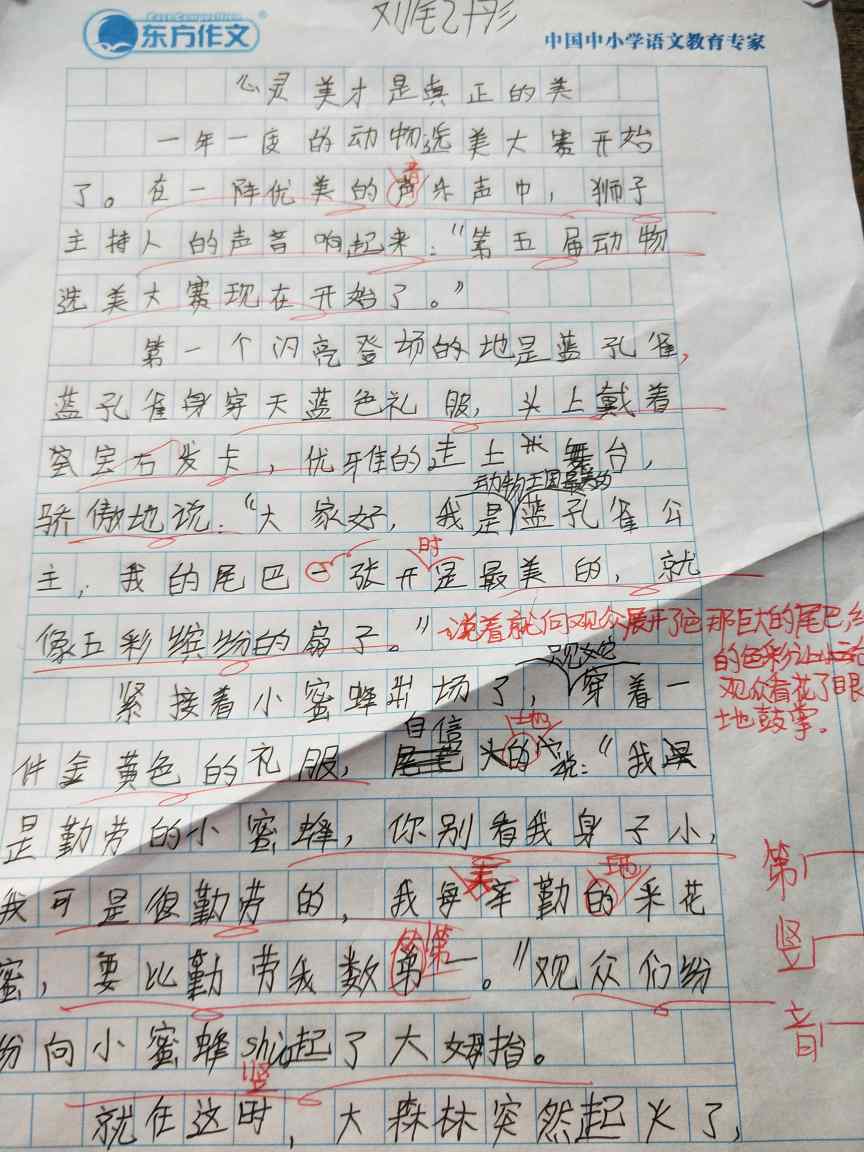 东方作文
中国中小学语文教育专家
心灵美才是真正的美
一年一度的动物选美大赛开始
了。在一阵优美的声乐声中，狮子
音
主持人的声音响起来：“第五届动物
选美大赛现在开始了。”
第一个闪亮登场的地是蓝孔雀，
蓝孔雀身穿天蓝色礼服，头上戴着
蓝宝石发卡，优雅的走上舞台，
动物王国最美的
骄傲地说：“大家好，我是蓝孔雀公
时
主，我的尾巴一张开是最美的，就
像五彩缤纷的扇子。”
说着就向观众展开了它那巨大的尾巴，
的色彩让
观众看花了眼
地鼓掌。
只见她
紧接着小蜜蜂出场了，穿着一
自信 地
件金黄色的礼服，的说：“我
是勤劳的小蜜蜂，你别看我身子小，
我可是很勤劳的，我每辛勤的采花
天 地
蜜，要比勤劳我数第一。”观众们纷
第
纷向小蜜蜂shù起了大姆指。
竖
就在这时，大森林突然起火了，
第
竖
音